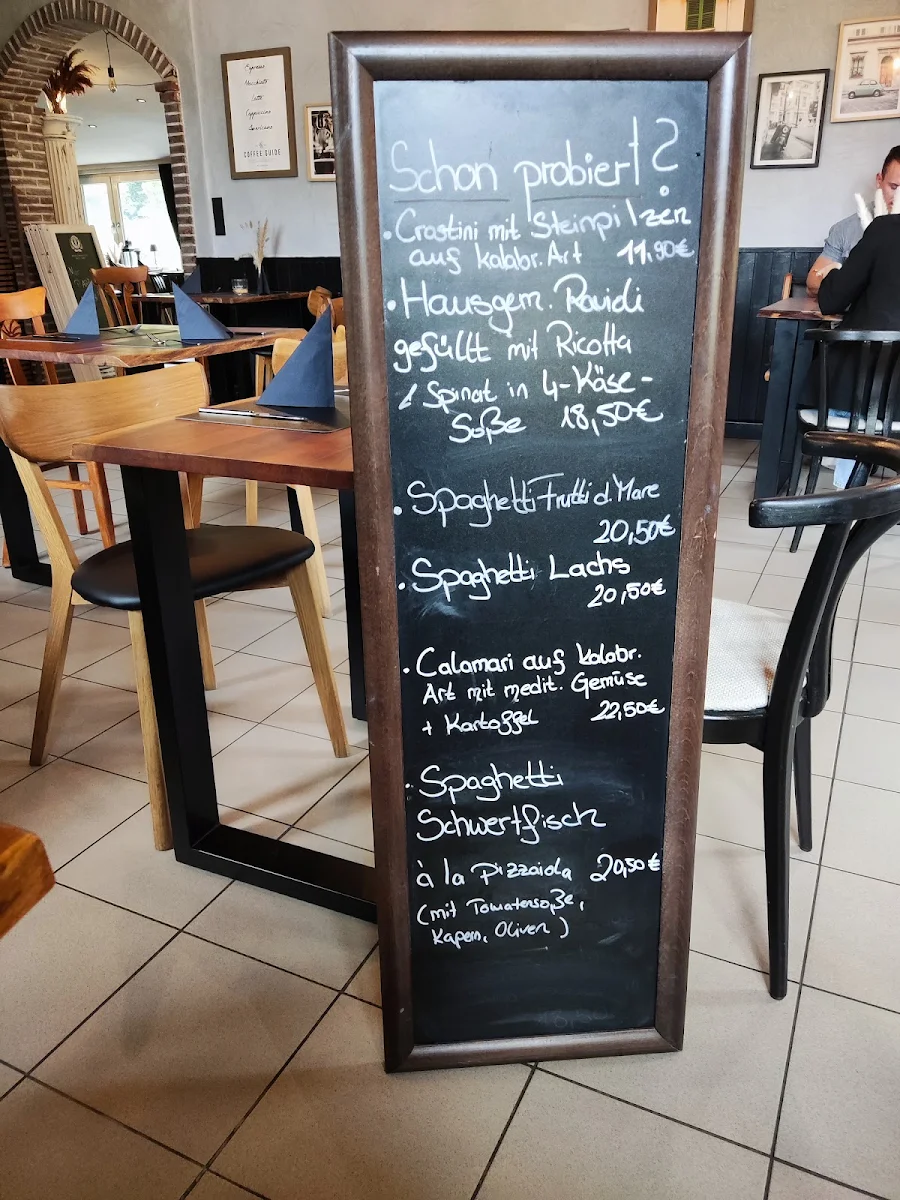 Espresso
Macchiato
Latte
Cappuccino
Americano
COFFEE GUIDE
Schon probiert?
• Crostini mit Steinpilzen
auf kalabr. Art 11,90€
• Hausgem. Ravioli
gefüllt mit Ricotta
& Spinat in 4-Käse-
Soße 18,50€
• Spaghetti Frutti d. Mare
20,50€
• Spaghetti Lachs
20,50€
• Calamari auf kalabr.
Art mit medit. Gemüse
+ Kartoffel 22,50€
• Spaghetti
Schwertfisch
à la Pizzaiola 20,50€
(mit Tomatensoße,
Kapern, Oliven)